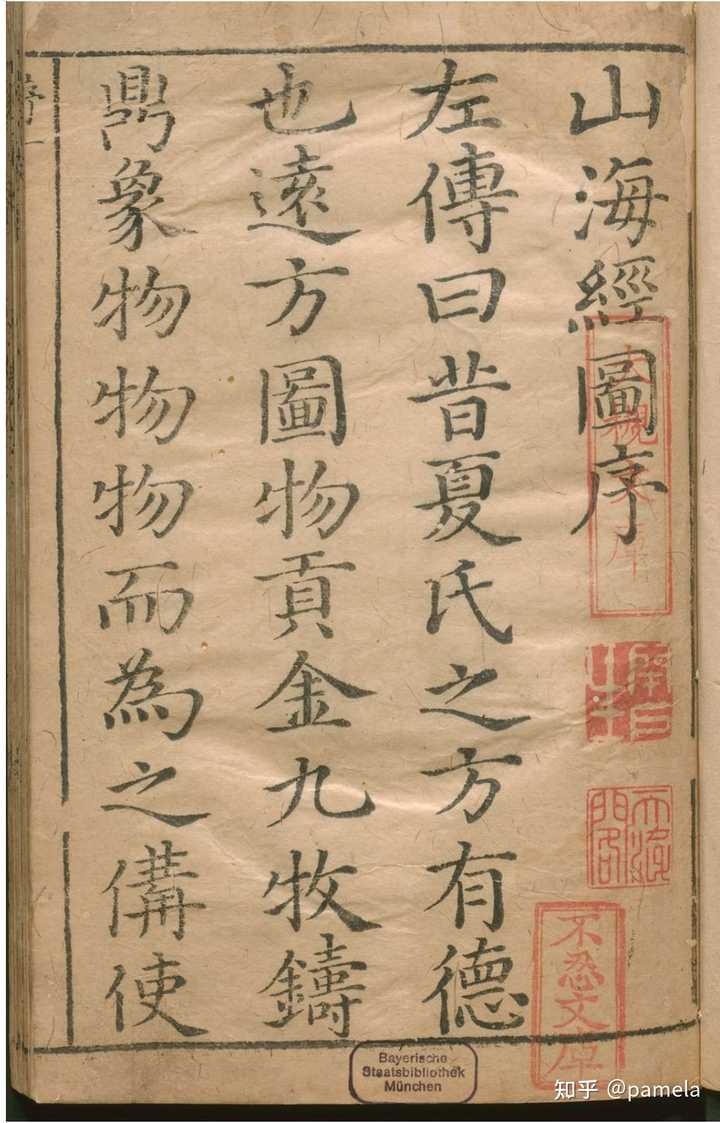 山海經圖序
左傳曰昔夏氏之方有德
也遠方圖物貢金九牧鑄
鼎象物物物而為之備使
不忍文庫
Bayerische
Staatsbibliothek
München
知乎 @pamela